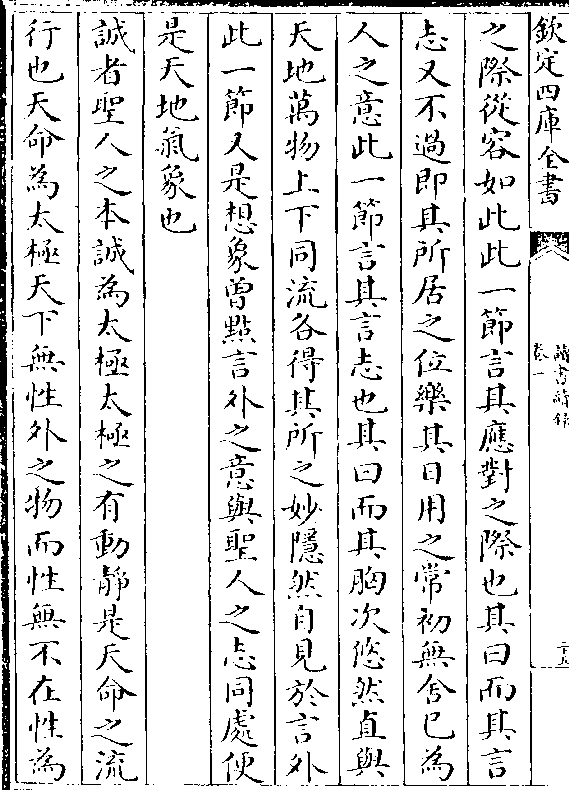 欽定四庫全書
讀書續錄
卷一
二十五
之際從容如此此一節言其應對之際也其曰而其言
志又不過即其所居之位樂其日用之常初無舍已為
人之意此一節言其言志也其曰而其胸次悠然直與
天地萬物上下同流各得其所之妙隱然自見於言外
此一節又是想象曾㸃言外之意與聖人之志同處便
是天地氣象也
誠者聖人之本誠為太極太極之有動靜是天命之流
行也天命為太極天下無性外之物而性無不在性為